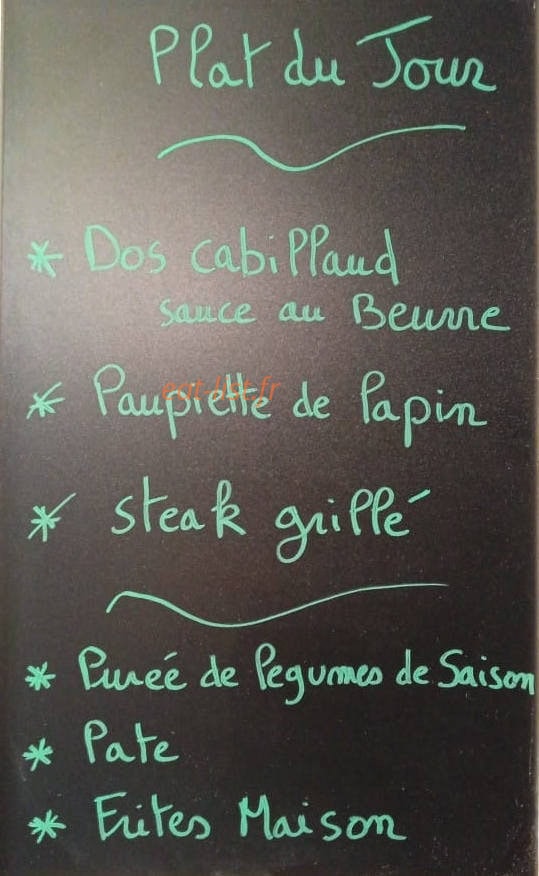 Plat du Jour
* Dos cabillaud
sauce au Beurre
* Paupiette de lapin
* steak grillé
* Pureé de legumes de Saison
* Pate
* Frites Maison
eat-list.fr